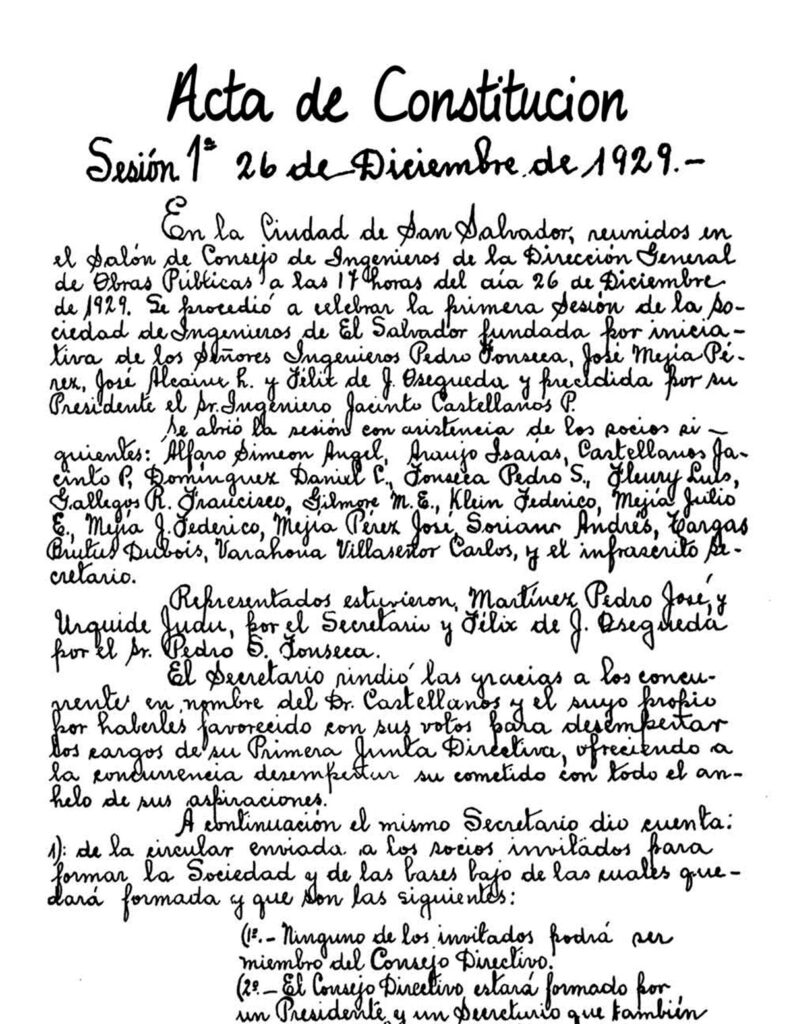 Acta de Constitucion
Sesión 1ª 26 de Diciembre de 1929.-
En la Ciudad de San Salvador, reunidos en
el Salón de Consejo de Ingenieros de la Dirección General
de Obras Públicas a las 17 horas del día 26 de Diciembre
de 1929. Se procedió a celebrar la primera Sesión de la So-
ciedad de Ingenieros de El Salvador fundada por inicia-
tiva de los Señores Ingenieros Pedro Fonseca, José Mejía Pé-
rez, José Alcaine L. y Félix de J. Osegueda y precidida por su
Presidente el Sr. Ingeniero Jacinto Castellanos P.
Se abrió la sesión con asistencia de los socios si-
guientes: Alfaro Simeon Angel, Araujo Isaías, Castellanos Ja-
cinto P, Domínguez Daniel C., Fonseca Pedro S., Fleury Luis,
Gallegos R. Francisco, Gilmore M. E., Klein Federico, Mejía Julio
E., Mejía J. Federico, Mejía Pérez José, Soriano Andrés, Vargas
Brutus Dubois, Varahona Villaseñor Carlos, y el infrascrito Se-
cretario.
Representados estuvieron, Martínez Pedro José, y
Urquide Judu, por el Secretario y Félix de J. Osegueda
por el Sr. Pedro S. Fonseca.
El Secretario rindió las gracias a los concu-
rrente en nombre del Dr. Castellanos y el suyo propio
por haberles favorecido con sus votos para desempeñar
los cargos de su Primera Junta Directiva, ofreciendo a
la concurrencia desempeñar su cometido con todo el an-
helo de sus aspiraciones.
A continuación el mismo Secretario dio cuenta:
1): de la circular enviada a los socios invitados para
formar la Sociedad y de las bases bajo de las cuales que-
dará formada y que son las siguientes:
(1ª.- Ninguno de los invitados podrá ser
miembro del Consejo Directivo.
(2ª.- El Consejo Directivo estará formado por
un Presidente y un Secretario que también